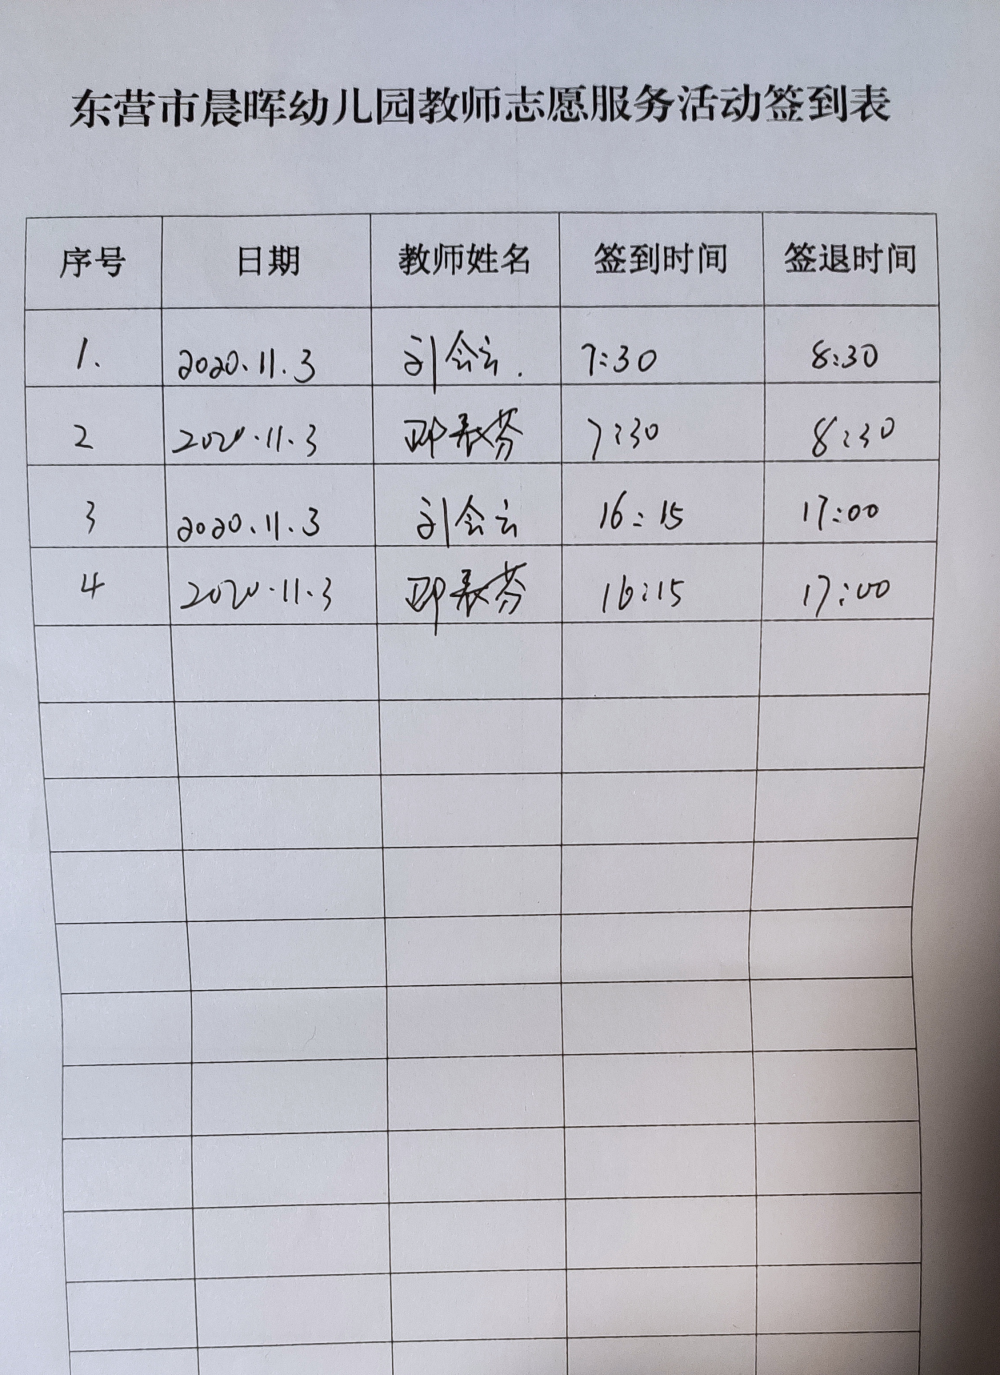 东营市晨晖幼儿园教师志愿服务活动签到表
序号 日期 教师姓名 签到时间 签退时间
1. 2020.11.3 刘会云. 7:30 8:30
2 2020.11.3 7:30 8:30
3 2020.11.3 刘会云 16:15 17:00
4 2020.11.3 16:15 17:00